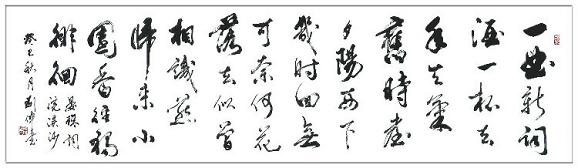 一曲新詞
酒一杯去
年天氣
舊時臺
夕陽西下
幾時回無
可奈何花
落去似曾
相識燕
歸來小
園香徑獨
徘徊
晏殊詞
浣溪沙
癸巳秋月